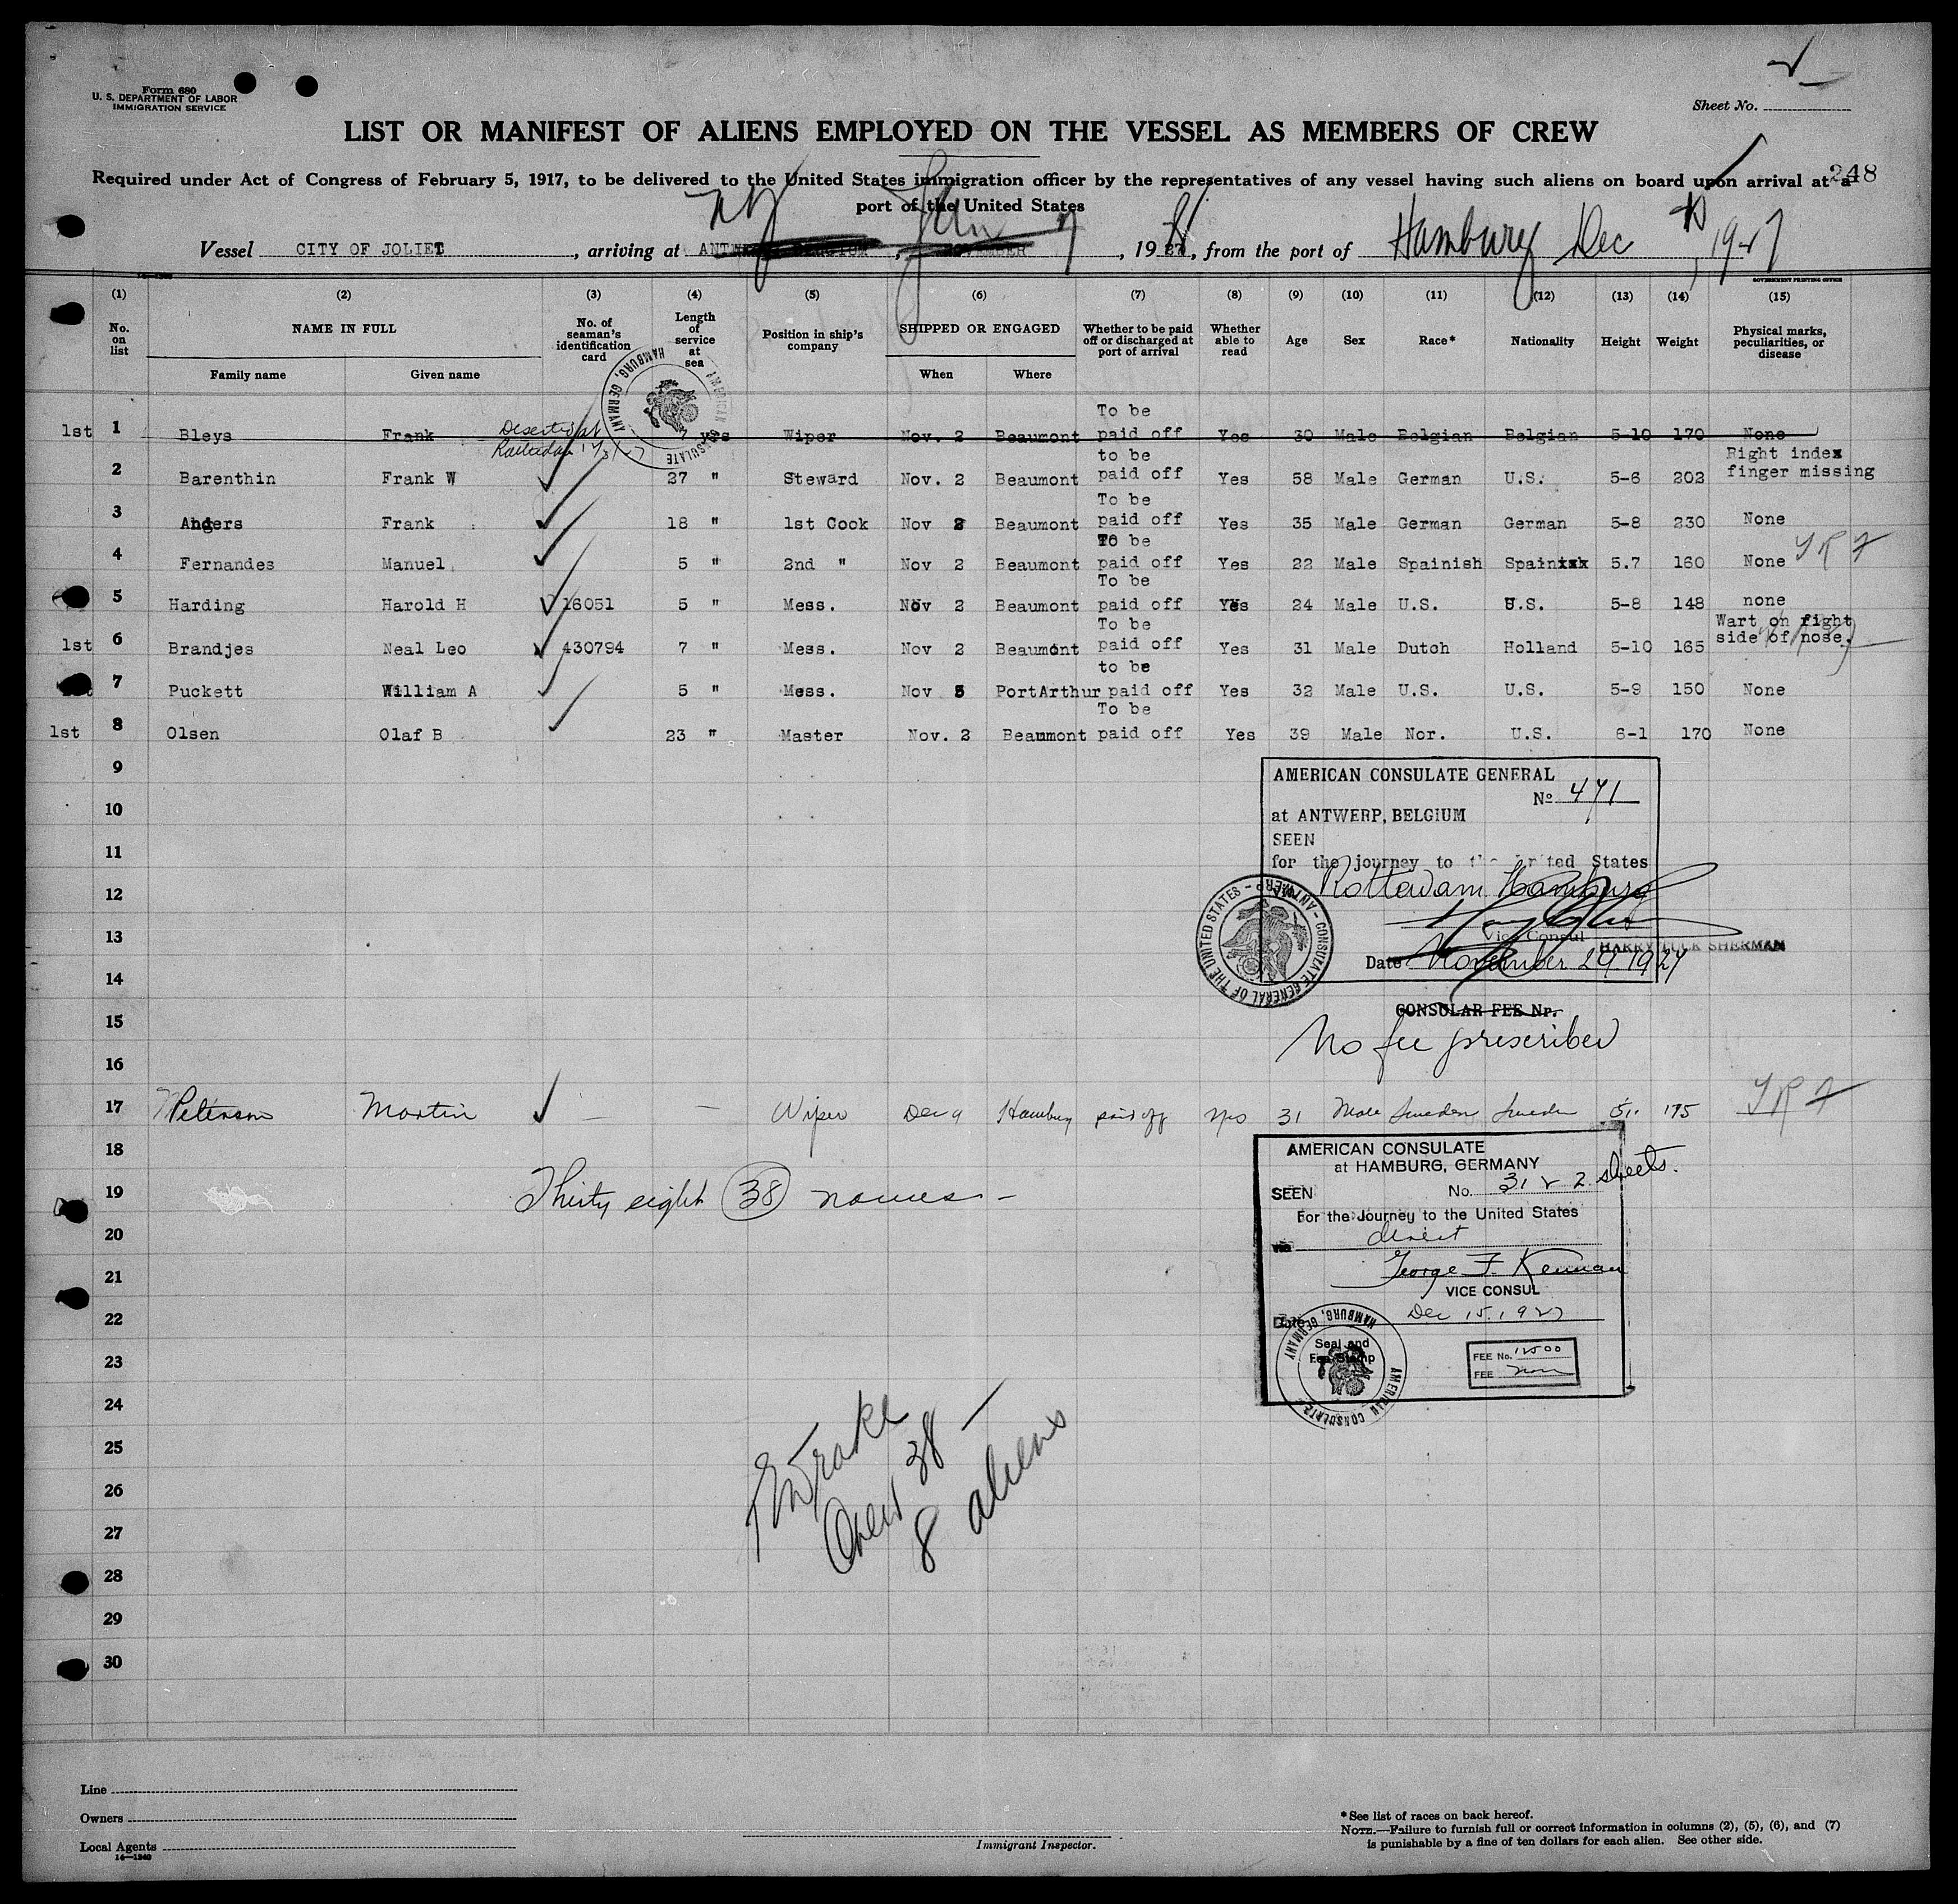 Form 680
U. S. DEPARTMENT OF LABOR
IMMIGRATION SERVICE
Sheet No. 2
LIST OR MANIFEST OF ALIENS EMPLOYED ON THE VESSEL AS MEMBERS OF CREW
248
Required under Act of Congress of February 5, 1917, to be delivered to the United States immigration officer by the representatives of any vessel having such aliens on board upon arrival at a
port of the United States
Vessel CITY OF JOLIET, arriving at NY, Jan 7, 1928, from the port of Hamburg Dec 1927
GOVERNMENT PRINTING OFFICE
(1) (2) (3) (4) (5) (6) (7) (8) (9) (10) (11) (12) (13) (14) (15)
No. on list NAME IN FULL No. of seaman's identification card Length of service at sea Position in ship's company SHIPPED OR ENGAGED Whether to be paid off or discharged at port of arrival Whether able to read Age Sex Race* Nationality Height Weight Physical marks, peculiarities, or disease
Family name Given name When Where
HAMBURG, GERMANY AMERICAN CONSULATE
1st 1 Bleys Frank Deserted at Rotterdam 7 yrs Wiper Nov. 2 Beaumont To be paid off Yes 30 Male Belgian Belgian 5-10 170 None
2 Barenthin Frank W 27 " Steward Nov. 2 Beaumont to be paid off Yes 58 Male German U.S. 5-6 202 Right index finger missing
3 Anders Frank 18 " 1st Cook Nov 2 Beaumont To be paid off Yes 35 Male German German 5-8 230 None
4 Fernandes Manuel 5 " 2nd " Nov 2 Beaumont To be paid off Yes 22 Male Spainish Spain 5.7 160 None
5 Harding Harold H 16051 5 " Mess. Nov 2 Beaumont To be paid off Yes 24 Male U.S. U.S. 5-8 148 none
1st 6 Brandjes Neal Leo 430794 7 " Mess. Nov 2 Beaumont To be paid off Yes 31 Male Dutch Holland 5-10 165 Wart on right side of nose.
7 Puckett William A 5 " Mess. Nov 5 PortArthur to be paid off Yes 32 Male U.S. U.S. 5-9 150 None
1st 8 Olsen Olaf B 23 " Master Nov. 2 Beaumont To be paid off Yes 39 Male Nor. U.S. 6-1 170 None
9
10
11
12
13
14
15
16
AMERICAN CONSULATE GENERAL
No 471
at ANTWERP, BELGIUM
SEEN
for the journey to the United States
Rotterdam Hamburg
Vice Consul HARRY TUCK SHERMAN
Date November 29 1927
CONSULATE GENERAL OF THE UNITED STATES - ANTWERP
CONSULAR FEE Nr.
No fee prescribed
17 Peterson Martin — — Wiper Dec 9 Hamburg paid off yes 31 Male Sweden Sweden 5.. 175
18
19
20
21
22
23
24
25
26
27
28
29
30
Thirty eight (38) names -
AMERICAN CONSULATE
at HAMBURG, GERMANY
SEEN No. 31 & 2 sheets.
For the Journey to the United States
via direct
George F. Kennan
VICE CONSUL
Date Dec 15, 1927
Seal and
Fee Stamp
HAMBURG, GERMANY AMERICAN CONSULATE
FEE No. 12500
FEE none
Crew 38 -
8 aliens
Line
Owners
Local Agents
14—1240
Immigrant Inspector.
*See list of races on back hereof.
NOTE.—Failure to furnish full or correct information in columns (2), (5), (6), and (7)
is punishable by a fine of ten dollars for each alien. See other side.